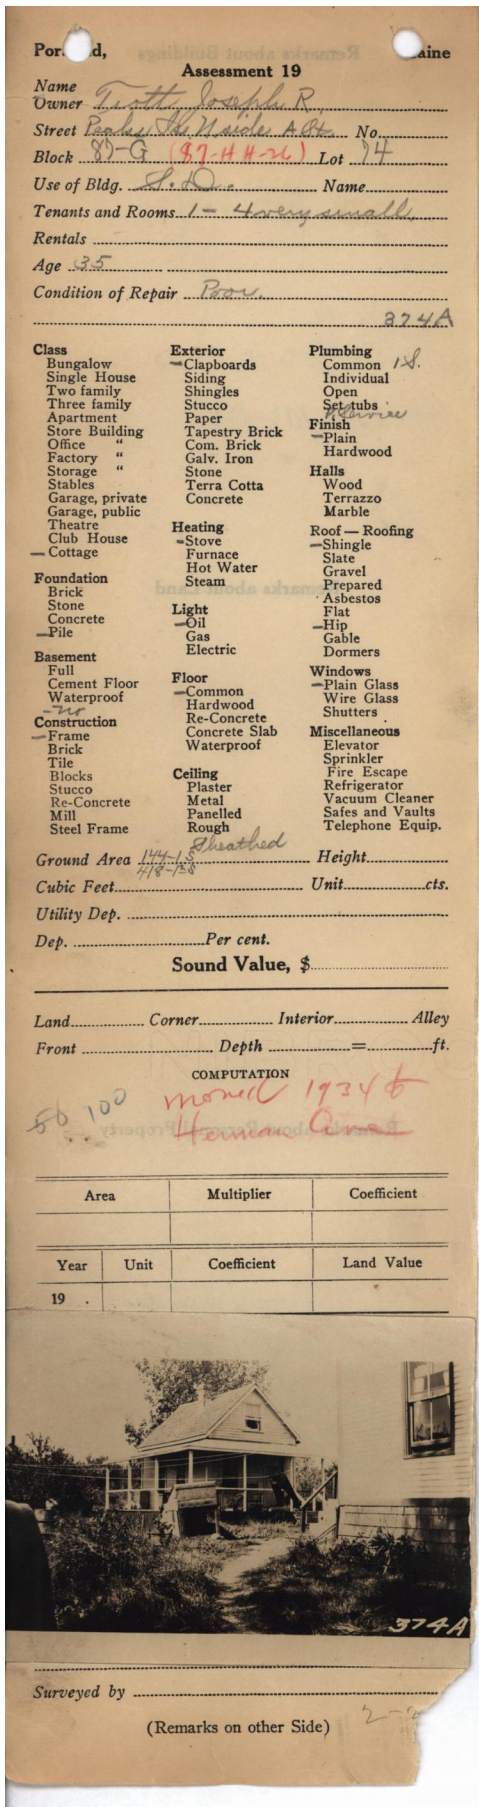 Portland, Maine
Assessment 19
Name
Owner Trott, Joseph R.
Street Peaks Isl. N side A St. No.
Block 87-G (87-HH-26) Lot 74
Use of Bldg. S.D. Name
Tenants and Rooms 1 - 4 very small
Rentals
Age 35
Condition of Repair Poor.
374A
Class
Bungalow
Single House
Two family
Three family
Apartment
Store Building
Office "
Factory "
Storage "
Stables
Garage, private
Garage, public
Theatre
Club House
– Cottage
Foundation
Brick
Stone
Concrete
– Pile
Basement
Full
Cement Floor
Waterproof
– no
Construction
– Frame
Brick
Tile
Blocks
Stucco
Re-Concrete
Mill
Steel Frame
Exterior
– Clapboards
Siding
Shingles
Stucco
Paper
Tapestry Brick
Com. Brick
Galv. Iron
Stone
Terra Cotta
Concrete
Heating
– Stove
Furnace
Hot Water
Steam
Light
– Oil
Gas
Electric
Floor
– Common
Hardwood
Re-Concrete
Concrete Slab
Waterproof
Ceiling
Plaster
Metal
Panelled
Rough
Sheathed
Plumbing
Common 1 S.
Individual
Open
Set tubs
Service
Finish
– Plain
Hardwood
Halls
Wood
Terrazzo
Marble
Roof — Roofing
– Shingle
Slate
Gravel
Prepared
Asbestos
Flat
– Hip
Gable
Dormers
Windows
– Plain Glass
Wire Glass
Shutters
Miscellaneous
Elevator
Sprinkler
Fire Escape
Refrigerator
Vacuum Cleaner
Safes and Vaults
Telephone Equip.
Ground Area 144-1 S Height
418-1 S
Cubic Feet Unit cts.
Utility Dep.
Dep. Per cent.
Sound Value, $
Land Corner Interior Alley
Front Depth = ft.
COMPUTATION
50 100 moved 1934 to
Herman
Area Multiplier Coefficient
Year Unit Coefficient Land Value
19
374A
Surveyed by
(Remarks on other Side)